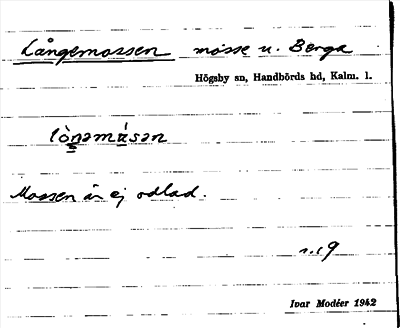 Långemossen mosse u. Berga
Högsby sn, Handbörds hd, Kalm. l.
Mossen är ej odlad.
Ivar Modéer 1942